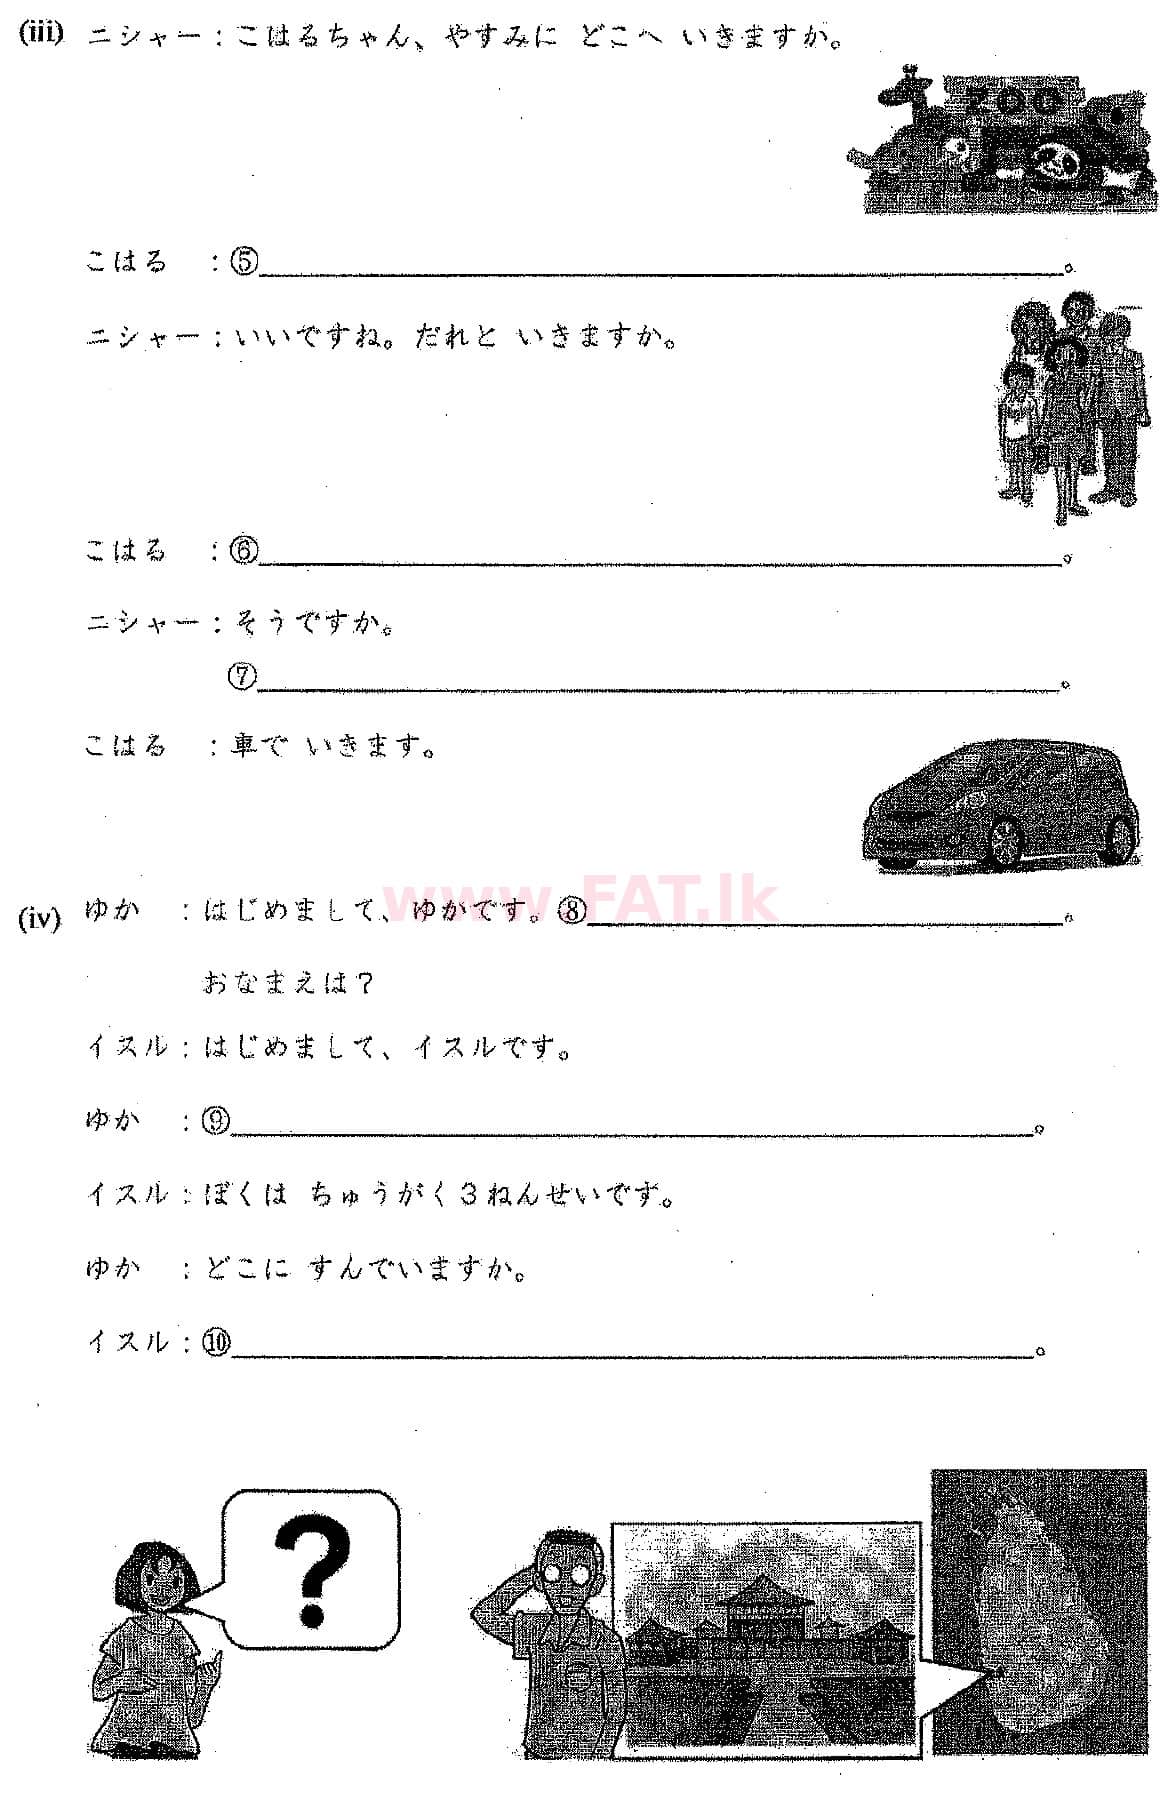 (iii) ニシャー：こはるちゃん、やすみに どこへ いきますか。
ZOO
こはる ：⑤。
ニシャー：いいですね。だれと いきますか。
こはる ：⑥。
ニシャー：そうですか。
⑦。
こはる ：車で いきます。
www.FAT.lk
(iv) ゆか ：はじめまして、ゆかです。⑧。
おなまえは？
イスル：はじめまして、イスルです。
ゆか ：⑨。
イスル：ぼくは ちゅうがく３ねんせいです。
ゆか ：どこに すんでいますか。
イスル：⑩。
?